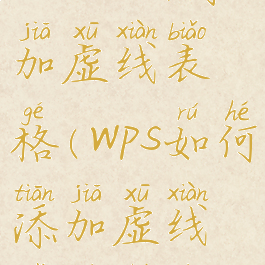 jiā xū xiàn biǎo
加虚线表
gé rú hé
格(WPS如何
tiān jiā xū xiàn
添加虚线